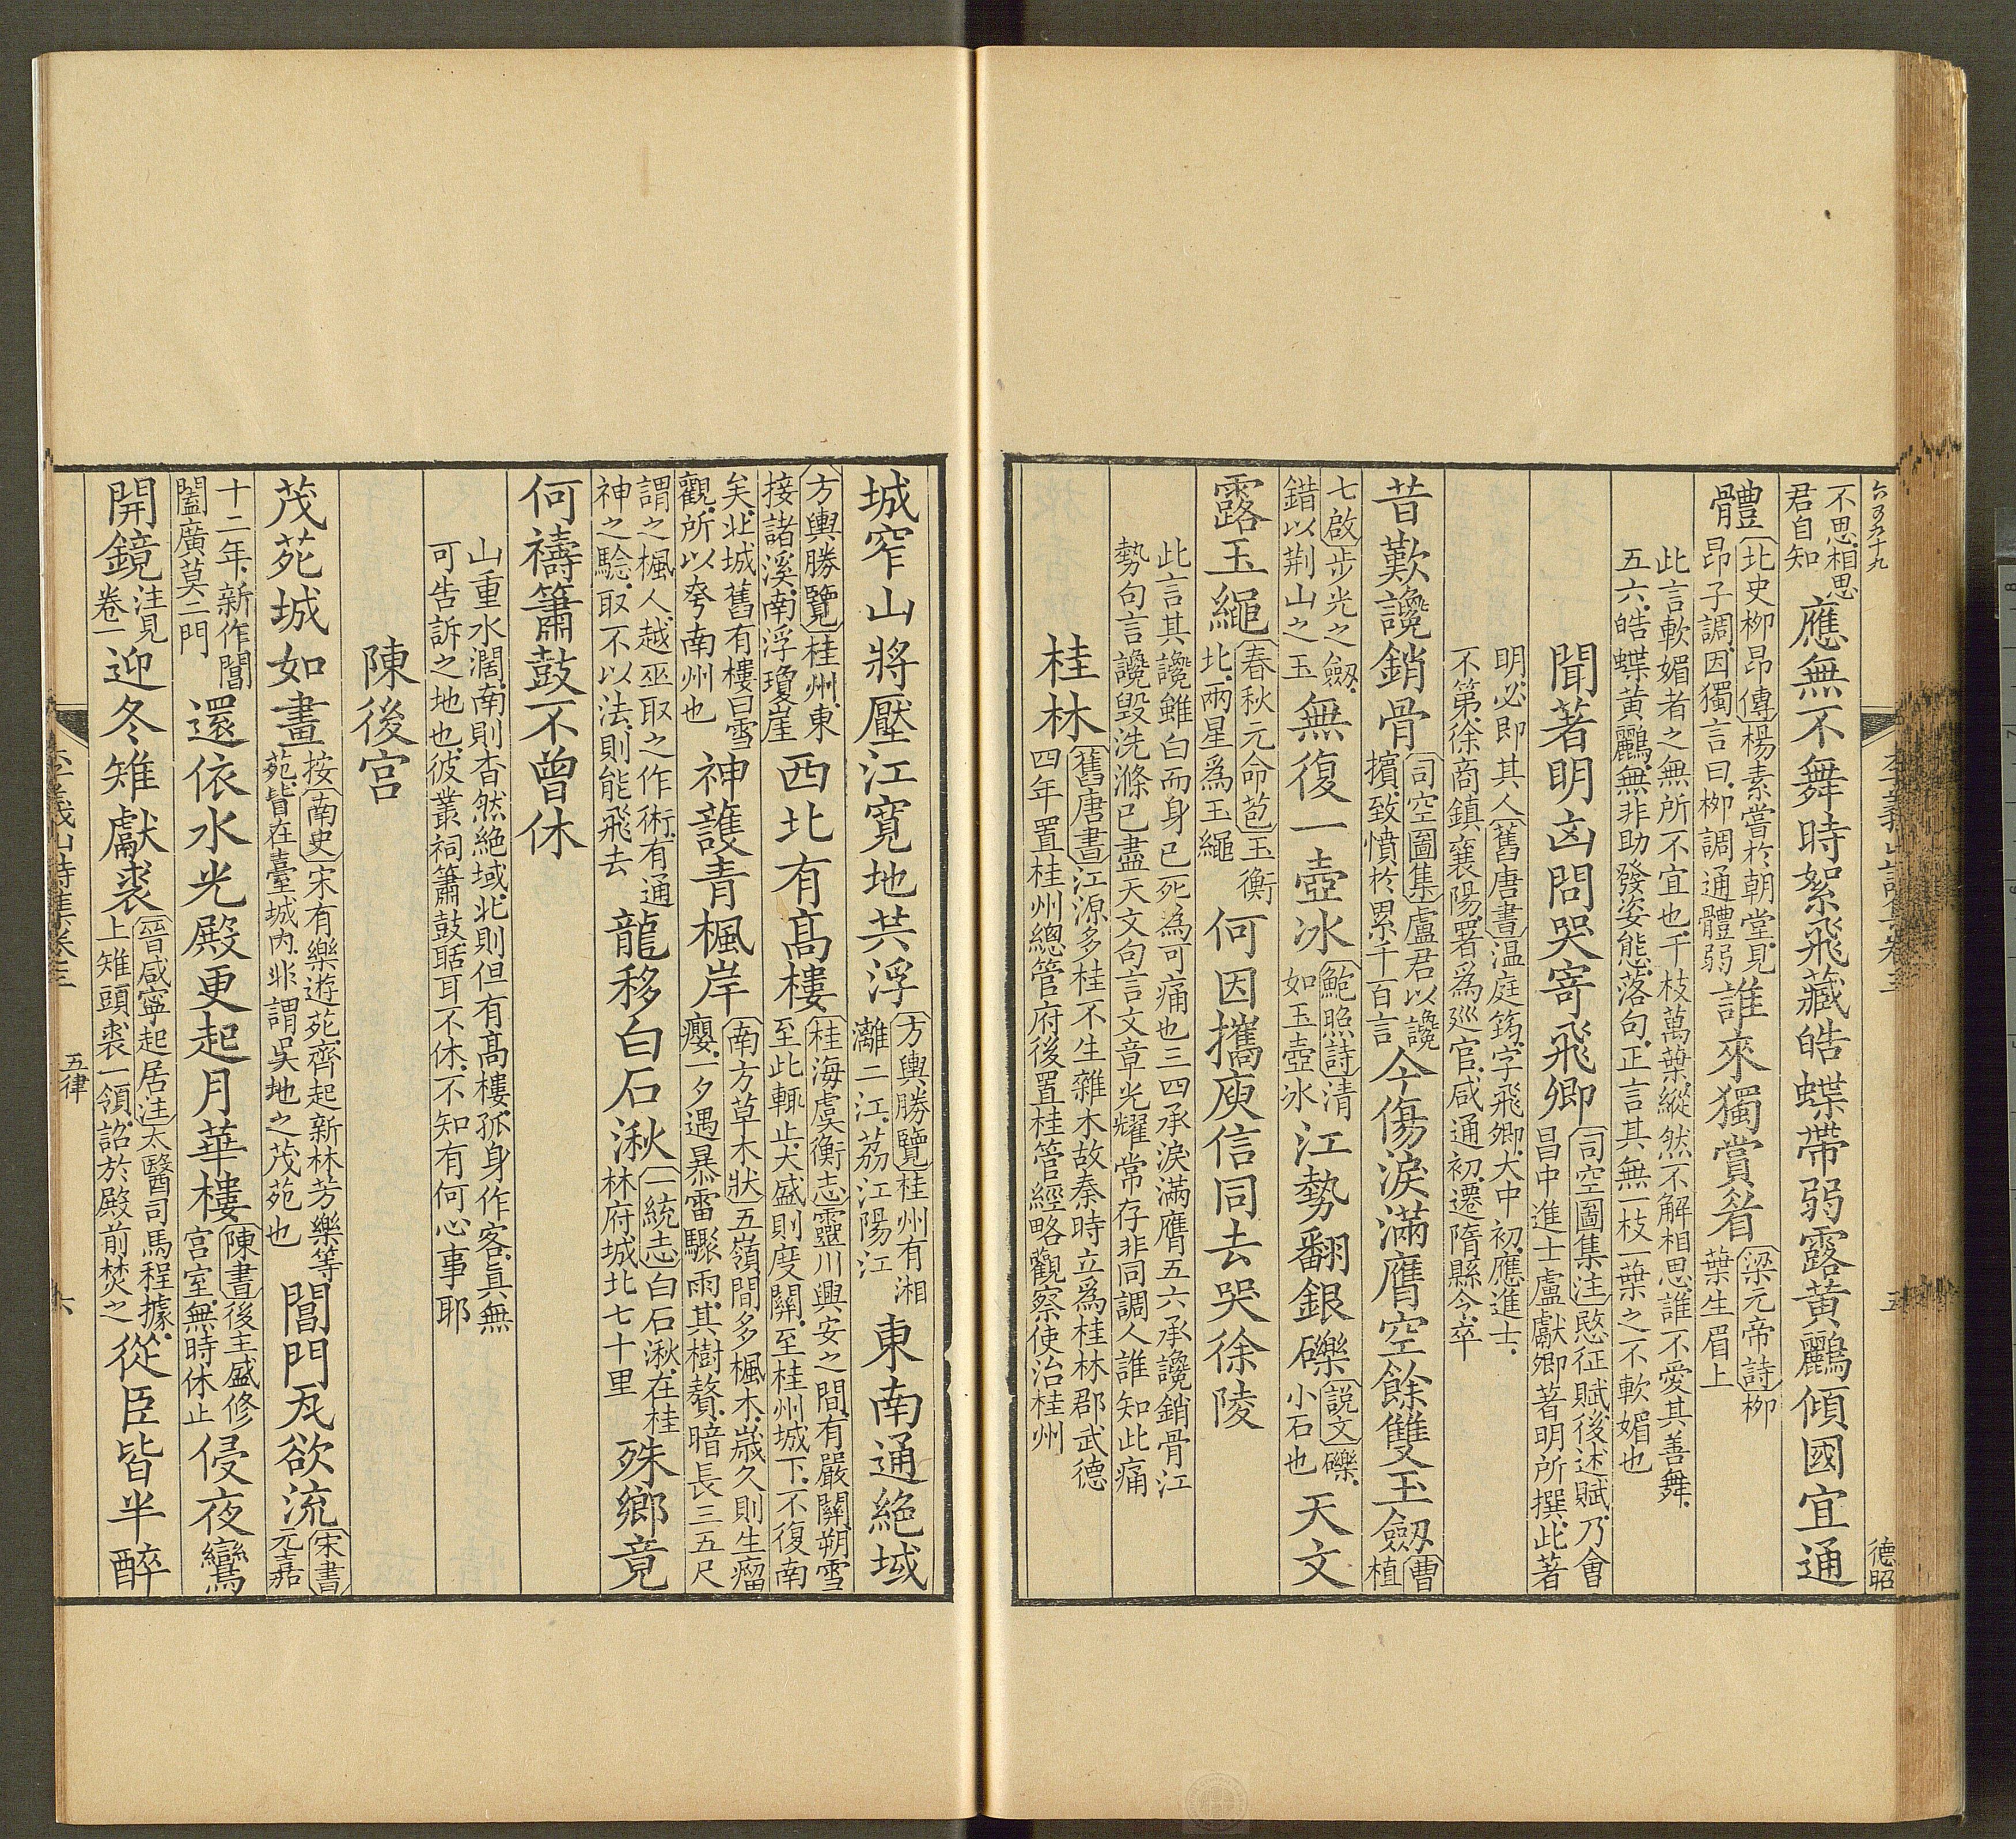 六百五十九 德昭
不思相思君自知應無不舞時絮飛藏皓蝶帶弱露黃鸝傾國宜通
體北史柳昂傳楊素嘗於朝堂見昂子調因獨言曰柳調通體弱誰來獨賞眉梁元帝詩柳葉生眉上
此言軟媚者之無所不宜也千枝萬葉縱然不解相思誰不愛其善舞
五六皓蝶黃鸝無非助發姿態落句正言其無一枝一葉之不軟媚也
聞著明凶問哭寄飛卿司空圖集注愍征賦後述賦乃會昌中進士盧獻卿著明所撰此著
明必即其人舊唐書温庭筠字飛卿大中初應進士
不第徐商鎮襄陽署爲巡官咸通初遷隋縣令卒
昔歎讒銷骨司空圖集盧君以讒擯致憤於累千百言今傷淚滿膺空餘雙玉劔曹植
七啟步光之劔錯以荆山之玉無復一壺冰鮑照詩清如玉壺冰江勢翻銀礫説文礫小石也天文
露玉繩春秋元命苞玉衡北兩星爲玉繩何因攜庾信同去哭徐陵
此言其讒雖白而身已死為可痛也三四承淚滿膺五六承讒銷骨江
勢句言讒毀洗滌已盡天文句言文章光耀常存非同調人誰知此痛
桂林舊唐書江源多桂不生雜木故秦時立爲桂林郡武德四年置桂州總管府後置桂管經略觀察使治桂州
城窄山將壓江寬地共浮方輿勝覽桂州有湘離二江荔江陽江東南通絕域
方輿勝覽桂州東接諸溪南浮瓊崖西北有高樓桂海虞衡志靈川興安之間有嚴關朔雪至此輒止大盛則度關至桂州城下不復南
矣北城舊有樓曰雪觀所以夸南州也神護青楓岸南方草木狀五嶺間多楓木歲久則生瘤癭一夕遇暴雷驟雨其樹贅暗長三五尺
謂之楓人越巫取之作術有通神之驗取不以法則能飛去龍移白石湫一統志白石湫在桂林府城北七十里殊鄉竟
何禱簫鼓不曾休
山重水濶南則杳然絕域北則但有高樓孤身作客真無
可告訴之地也彼叢祠簫鼓聒耳不休不知有何心事耶
陳後宮
茂苑城如畫按南史宋有樂遊苑齊起新林芳樂等苑皆在臺城內非謂吳地之茂苑也閶門瓦欲流宋書元嘉
十二年新作閶闔廣莫二門還依水光殿更起月華樓陳書後主盛修宮室無時休止侵夜鸞
開鏡注見卷一迎冬雉獻裘晉咸寧起居注太醫司馬程據上雉頭裘一領詔於殿前焚之從臣皆半醉
五律
六